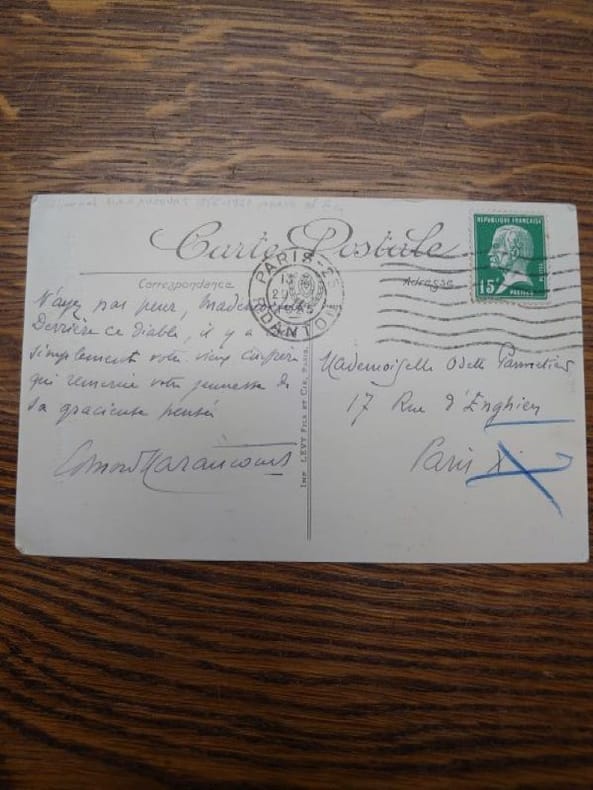 Carte Postale
Correspondance
Adresse
PARIS-25
R. DANTON
REPUBLIQUE FRANÇAISE
15c
PASTEUR
N'ayez pas peur,
Derrière ce Diable, il y a
simplement votre vieux
qui remercie votre jeunesse de
sa gracieuse pensée
Edmond Haraucourt
IMP. LEVY FILS ET CIE, PARIS
Mademoiselle Odette
17 Rue d'Enghien
Paris X